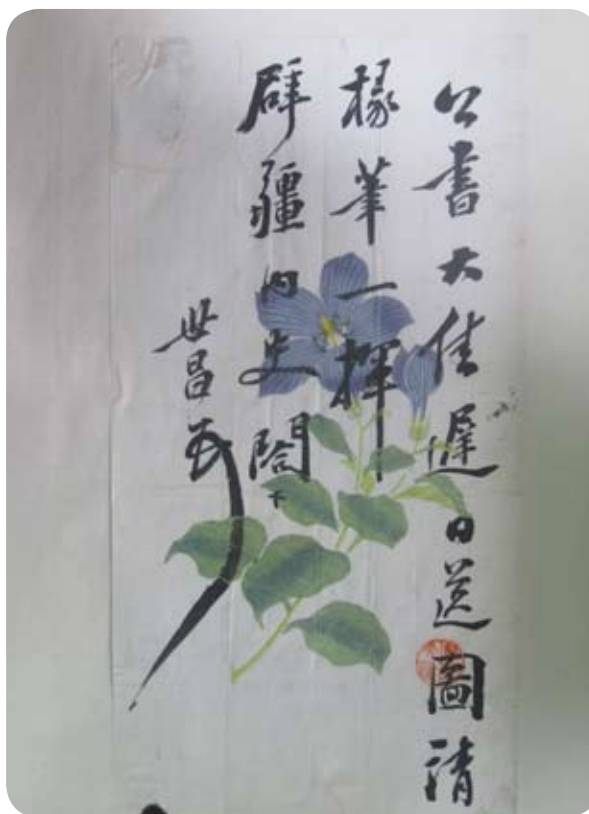 公書大佳遲日送圖請
椽筆一揮
辟疆內史閣下
世昌